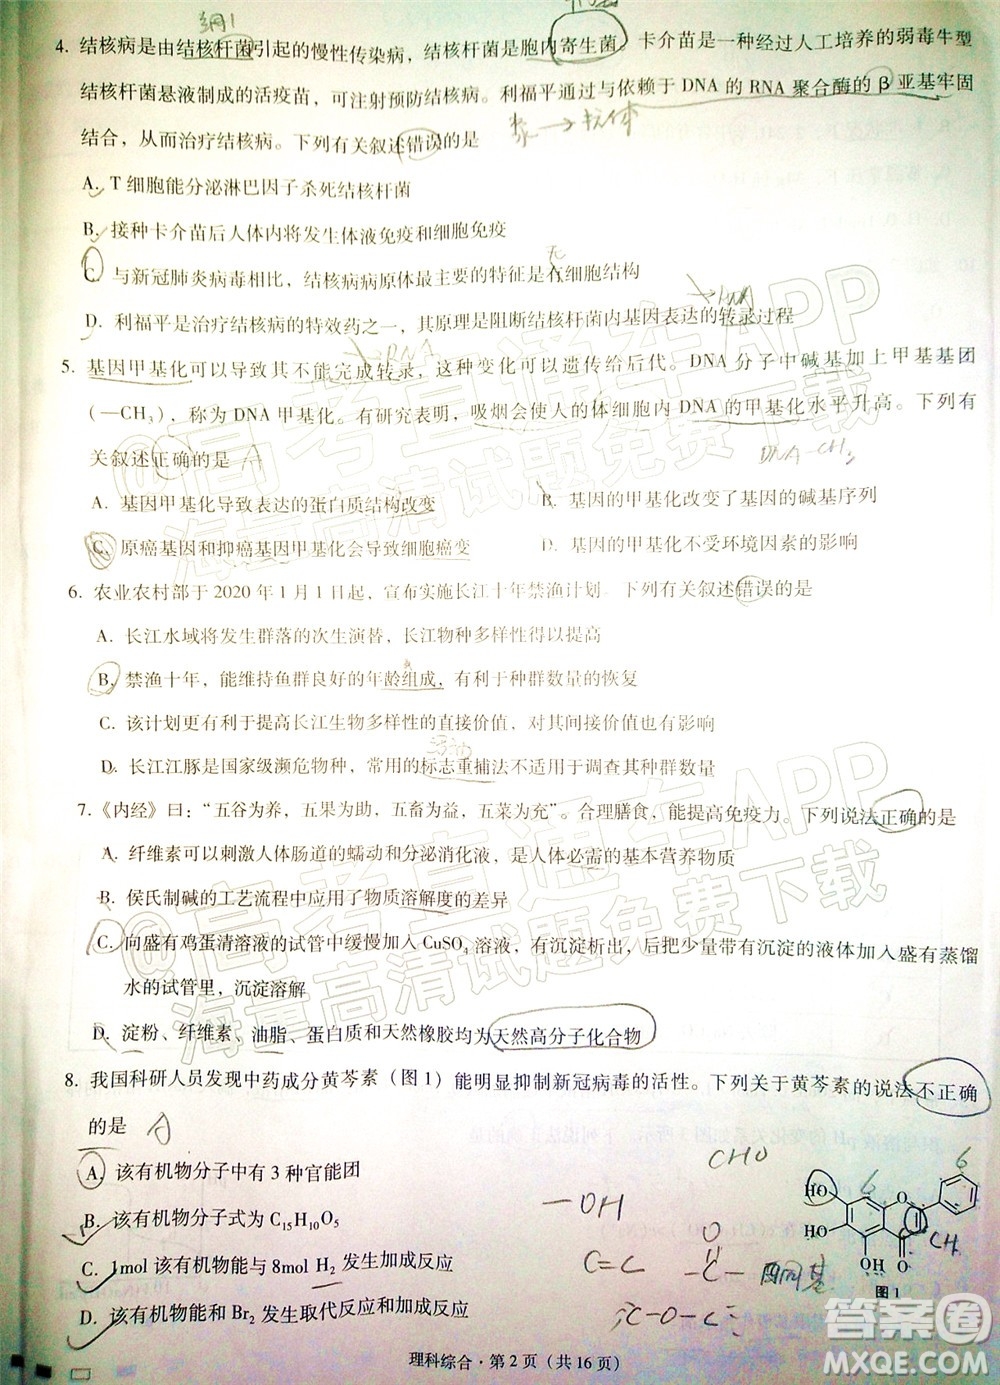 4. 结核病是由结核杆菌引起的慢性传染病，结核杆菌是胞内寄生菌。卡介苗是一种经过人工培养的弱毒牛型
结核杆菌悬液制成的活疫苗，可注射预防结核病。利福平通过与依赖于 DNA 的 RNA 聚合酶的 β 亚基牢固
结合，从而治疗结核病。下列有关叙述错误的是
→抗体
A. T 细胞能分泌淋巴因子杀死结核杆菌
B. 接种卡介苗后人体内将发生体液免疫和细胞免疫
无
C. 与新冠肺炎病毒相比，结核病病原体最主要的特征是有细胞结构
D. 利福平是治疗结核病的特效药之一，其原理是阻断结核杆菌内基因表达的转录过程
→RNA
5. 基因甲基化可以导致其不能完成转录，这种变化可以遗传给后代。DNA 分子中碱基加上甲基基团
(—CH₃)，称为 DNA 甲基化。有研究表明，吸烟会使人的体细胞内 DNA 的甲基化水平升高。下列有
关叙述正确的是
DNA-CH₃
A. 基因甲基化导致表达的蛋白质结构改变 B. 基因的甲基化改变了基因的碱基序列
C. 原癌基因和抑癌基因甲基化会导致细胞癌变 D. 基因的甲基化不受环境因素的影响
6. 农业农村部于 2020 年 1 月 1 日起，宣布实施长江十年禁渔计划。下列有关叙述错误的是
A. 长江水域将发生群落的次生演替，长江物种多样性得以提高
B. 禁渔十年，能维持鱼群良好的年龄组成，有利于种群数量的恢复
C. 该计划更有利于提高长江生物多样性的直接价值，对其可持续发展也有影响
D. 长江江豚是国家级濒危物种，常用的标志重捕法不适用于调查其种群数量
7.《内经》曰：“五谷为养，五果为助，五畜为益，五菜为充”。合理膳食，能提高免疫力。下列说法正确的是
A. 纤维素可以刺激人体肠道的蠕动和分泌消化液，是人体必需的基本营养物质
B. 侯氏制碱的工艺流程中应用了物质溶解度的差异
C. 向盛有鸡蛋清溶液的试管中缓慢加入 CuSO₄ 溶液，有沉淀析出，后把少量带有沉淀的液体加入盛有蒸馏
水的试管里，沉淀溶解
D. 淀粉、纤维素、油脂、蛋白质和天然橡胶均为天然高分子化合物
8. 我国科研人员发现中药成分黄芩素（图 1）能明显抑制新冠病毒的活性。下列关于黄芩素的说法不正确
的是 A
CHO
A. 该有机物分子中有 3 种官能团
-OH
B. 该有机物分子式为 C₁₅H₁₀O₅
C. 1mol 该有机物能与 8mol H₂ 发生加成反应
C=C
D. 该有机物能和 Br₂ 发生取代反应和加成反应
C-O-C
HO
HO
OH
O
O
6
6
CH
图 1
理科综合 · 第 2 页（共 16 页）
@高考直通车APP
海量高清试题免费下载
@高考直通车APP
海量高清试题免费下载
答案圈
MXQE.COM